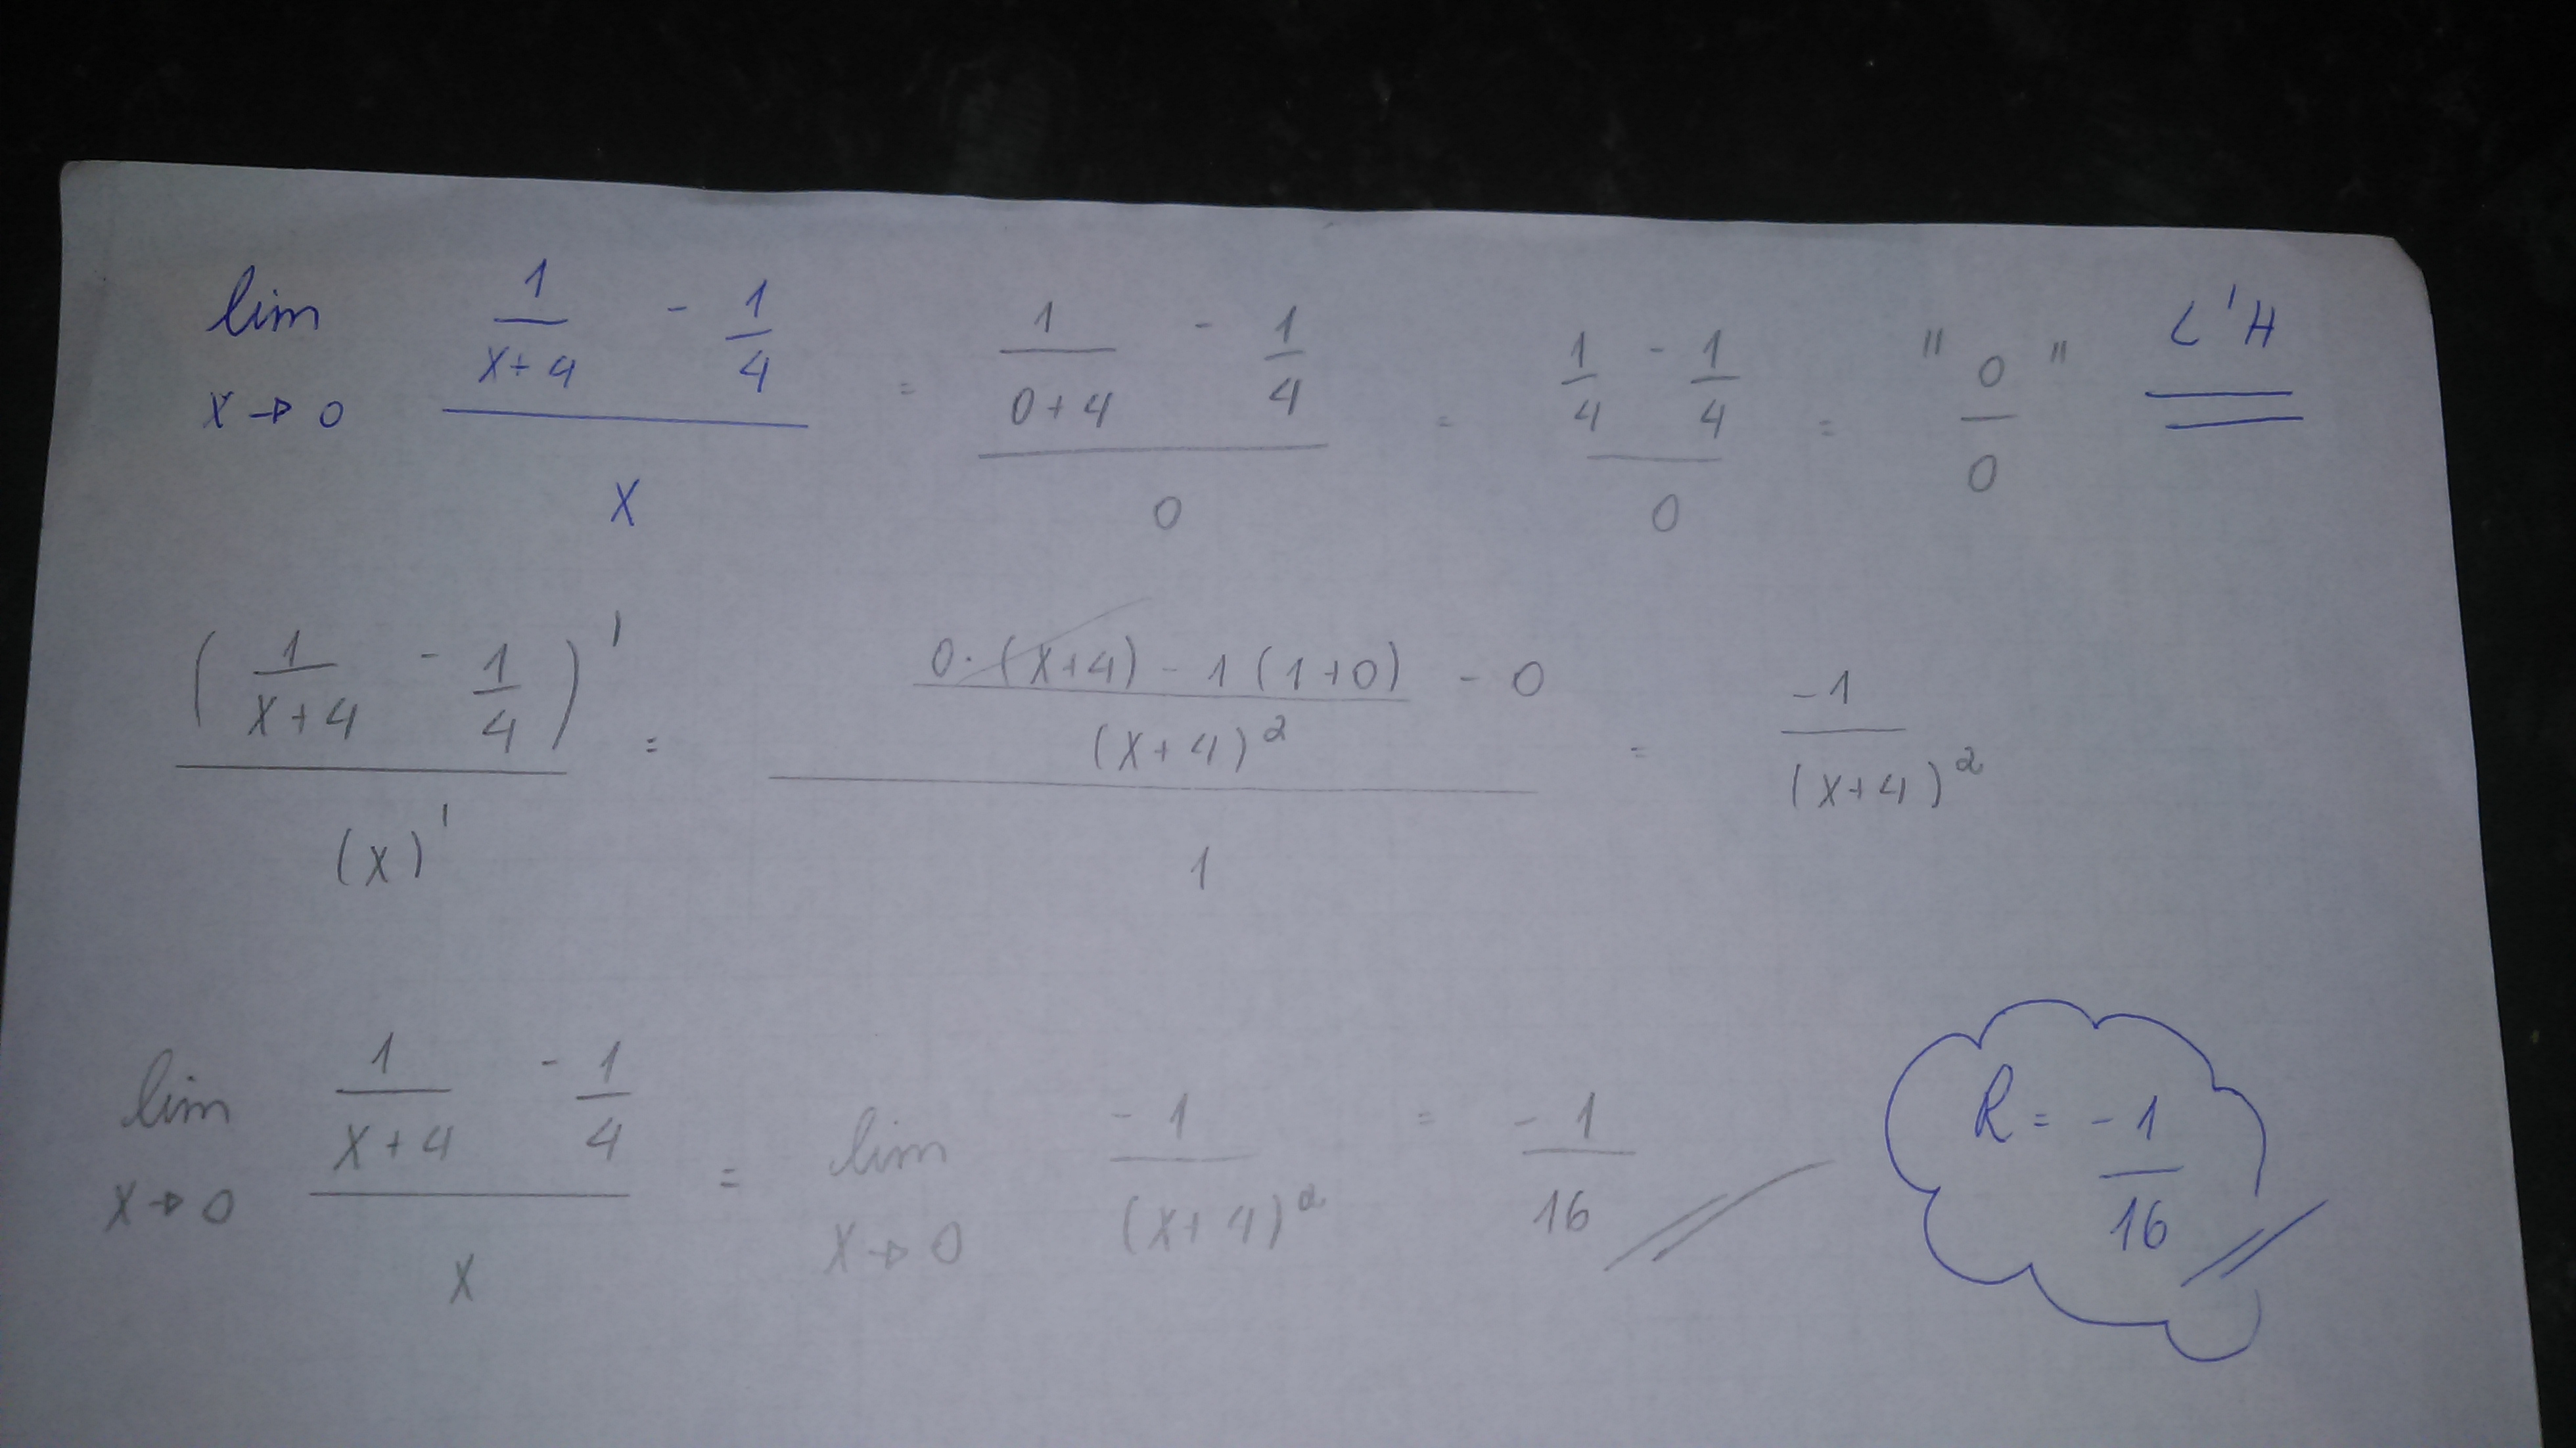 lim x→0 (1/(x+4) - 1/4)/x = (1/(0+4) - 1/4)/0 = (1/4 - 1/4)/0 = "0/0" L'H
(1/(x+4) - 1/4)'/(x)' = ((0·(x+4) - 1(1+0))/(x+4)² - 0)/1 = -1/(x+4)²
lim x→0 (1/(x+4) - 1/4)/x = lim x→0 -1/(x+4)² = -1/16
R = -1/16